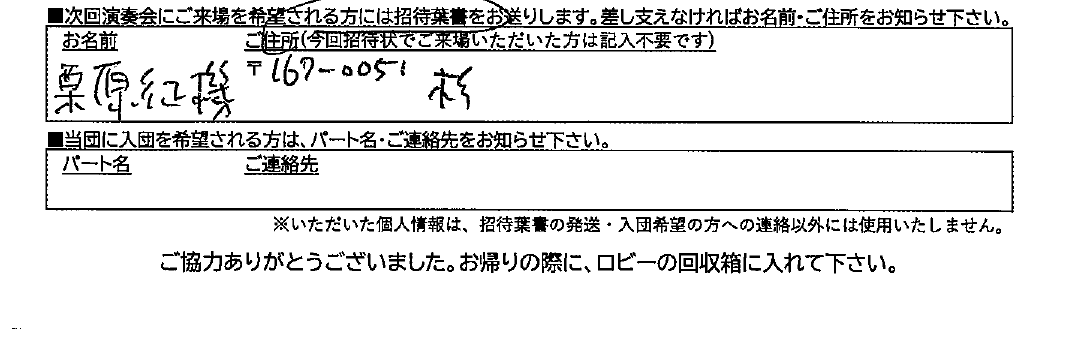 ■次回演奏会にご来場を希望される方には招待葉書をお送りします。差し支えなければお名前・ご住所をお知らせ下さい。
お名前 ご住所(今回招待状でご来場いただいた方は記入不要です)
栗原紅機 〒167-0051 杉
■当団に入団を希望される方は、パート名・ご連絡先をお知らせ下さい。
パート名 ご連絡先
※いただいた個人情報は、招待葉書の発送・入団希望の方への連絡以外には使用いたしません。
ご協力ありがとうございました。お帰りの際に、ロビーの回収箱に入れて下さい。